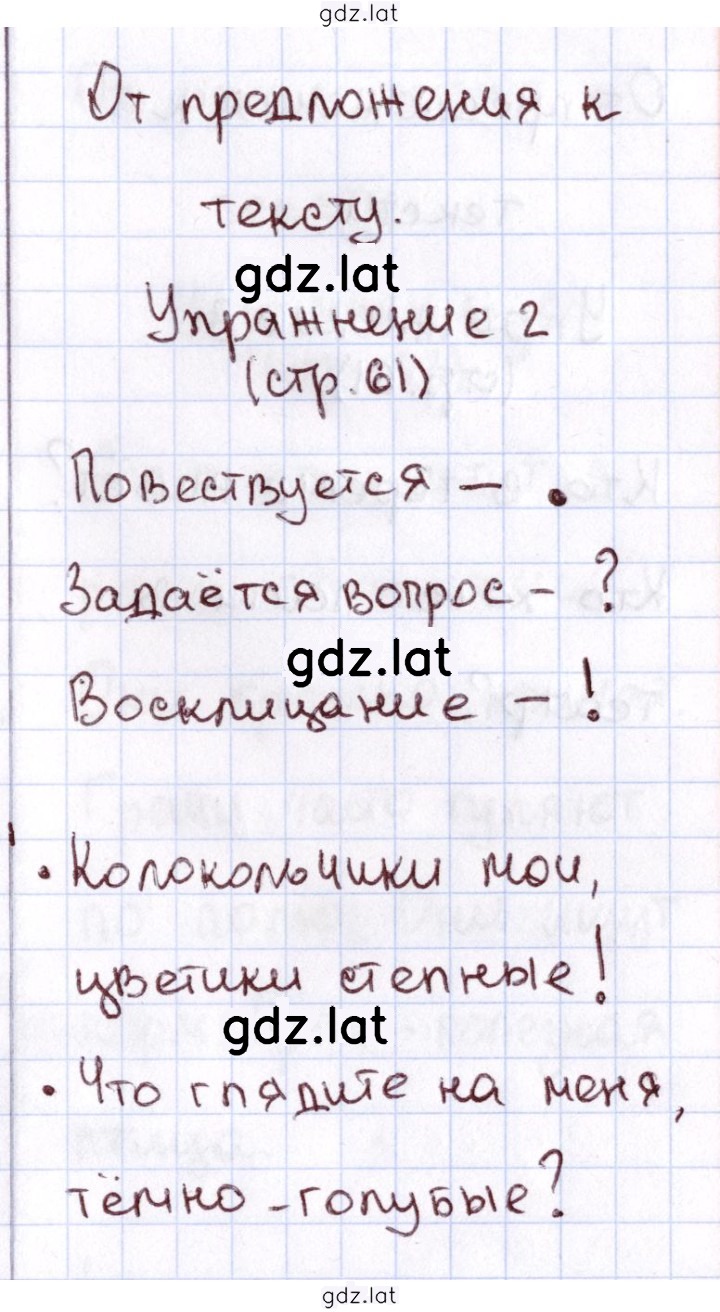 gdz.lat
От предложения к
тексту.
gdz.lat
Упражнение 2
(стр. 61)
Повествуется – .
Задаётся вопрос – ?
gdz.lat
Восклицание – !
• Колокольчики мои,
цветики степные!
gdz.lat
• Что глядите на меня,
тёмно-голубые?
gdz.lat